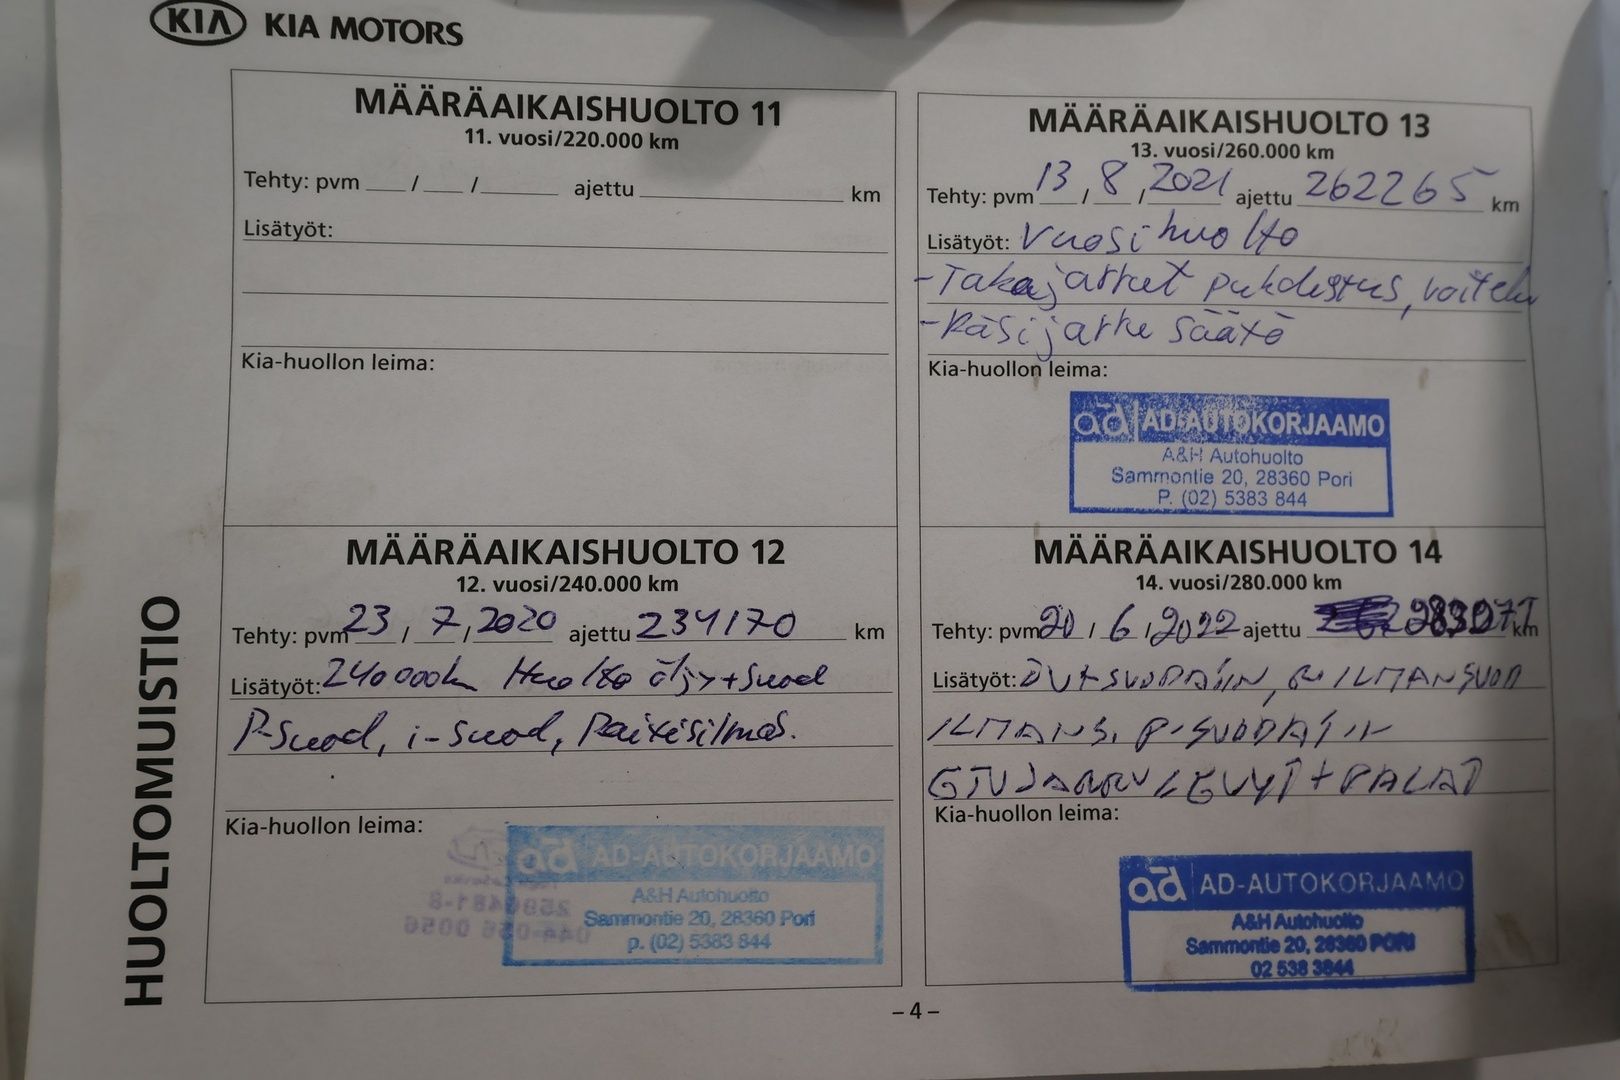 KIA KIA MOTORS
HUOLTOMUISTIO
MÄÄRÄAIKAISHUOLTO 11
11. vuosi/220.000 km
Tehty: pvm / / ajettu km
Lisätyöt:
Kia-huollon leima:
MÄÄRÄAIKAISHUOLTO 12
12. vuosi/240.000 km
Tehty: pvm 23 / 7 / 2020 ajettu 234170 km
Lisätyöt: 240 000km Huolto öljy+suod
P-suod, i-suod, Raitisilmas.
Kia-huollon leima:
ad AD-AUTOKORJAAMO
A&H Autohuolto
Sammontie 20, 28360 Pori
p. (02) 5383 844
MÄÄRÄAIKAISHUOLTO 13
13. vuosi/260.000 km
Tehty: pvm 13 / 8 / 2021 ajettu 262265 km
Lisätyöt: Vuosihuolto
-Takajarrut puhdistus, voitelu
-Käsijarru säätö
Kia-huollon leima:
ad AD-AUTOKORJAAMO
A&H Autohuolto
Sammontie 20, 28360 Pori
P. (02) 5383 844
MÄÄRÄAIKAISHUOLTO 14
14. vuosi/280.000 km
Tehty: pvm 20 / 6 / 2022 ajettu km
Lisätyöt: ILMANSUOD
ILMANS. P-SUODATIN
ETUJARRU LEVYT + PALAT
Kia-huollon leima:
ad AD-AUTOKORJAAMO
A&H Autohuolto
Sammontie 20, 28360 PORI
02 538 3844
– 4 –